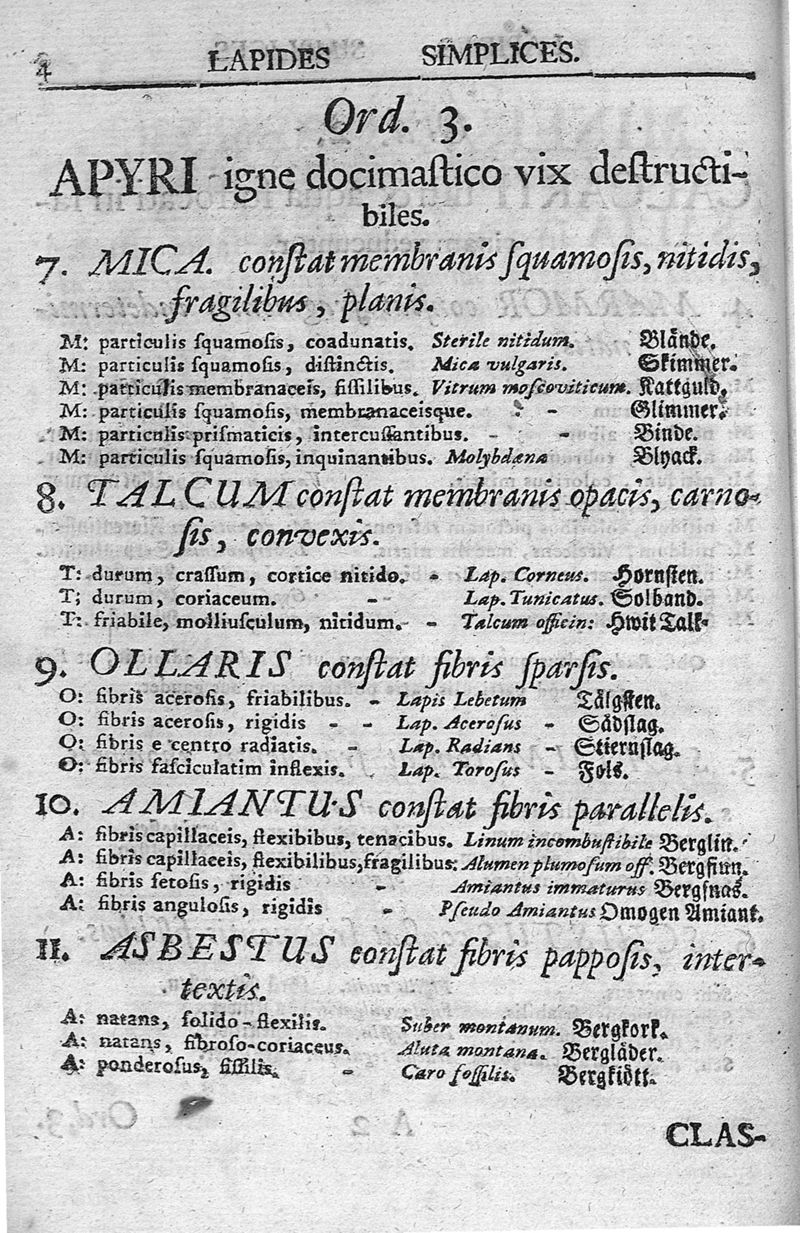 4 LAPIDES SIMPLICES.
Ord. 3.
APYRI igne docimaſtico vix deſtructi-
biles.
7. MICA. conſtat membranis ſquamoſis, nitidis,
fragilibus, planis.
M: particulis ſquamoſis, coadunatis. Sterile nitidum. Blände.
M: particulis ſquamoſis, diſtinctis. Mica vulgaris. Skimmer.
M: particulis membranaceis, fiſſilibus. Vitrum moſcoviticum. Kattguld.
M: particulis ſquamoſis, membranaceisque. - Glimmer.
M: particulis priſmaticis, intercuſſantibus. - - Binde.
M: particulis ſquamoſis, inquinantibus. Molybdæna Blyack.
8. TALCUM conſtat membranis opacis, carno-
ſis, convexis.
T: durum, craſſum, cortice nitido. - Lap. Corneus. Hornſten.
T; durum, coriaceum. - Lap. Tunicatus. Solband.
T: friabile, molliusculum, nitidum. - Talcum officin: Hwit Talk.
9. OLLARIS conſtat fibris ſparſis.
O: fibris aceroſis, friabilibus. - Lapis Lebetum Tälgſten.
O: fibris aceroſis, rigidis - - Lap. Aceroſus - Sådſlag.
O: fibris e centro radiatis. - Lap. Radians - Stiernſlag.
O: fibris faſciculatim inflexis. Lap. Toroſus - Fols.
10. AMIANTUS conſtat fibris parallelis.
A: fibris capillaceis, flexibibus, tenacibus. Linum incombuſtibile Berglin.
A: fibris capillaceis, flexibilibus, fragilibus: Alumen plumoſum off. Bergfiun.
A: fibris ſetoſis, rigidis - Amiantus immaturus Bergſnas.
A: fibris anguloſis, rigidis - Pſeudo Amiantus Omogen Amiant.
11. ASBESTUS conſtat fibris pappoſis, inter-
textis.
A: natans, ſolido-flexilis. Suber montanum. Bergkork.
A: natans, fibroſo-coriaceus. Aluta montana. Bergläder.
A: ponderoſus, fiſſilis. - Caro foſſilis. Bergkiött.
CLAS-